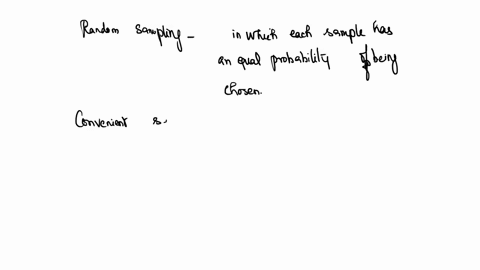 Random Sampling - in which each sample has
an equal probability of being
chosen.
Convenient s